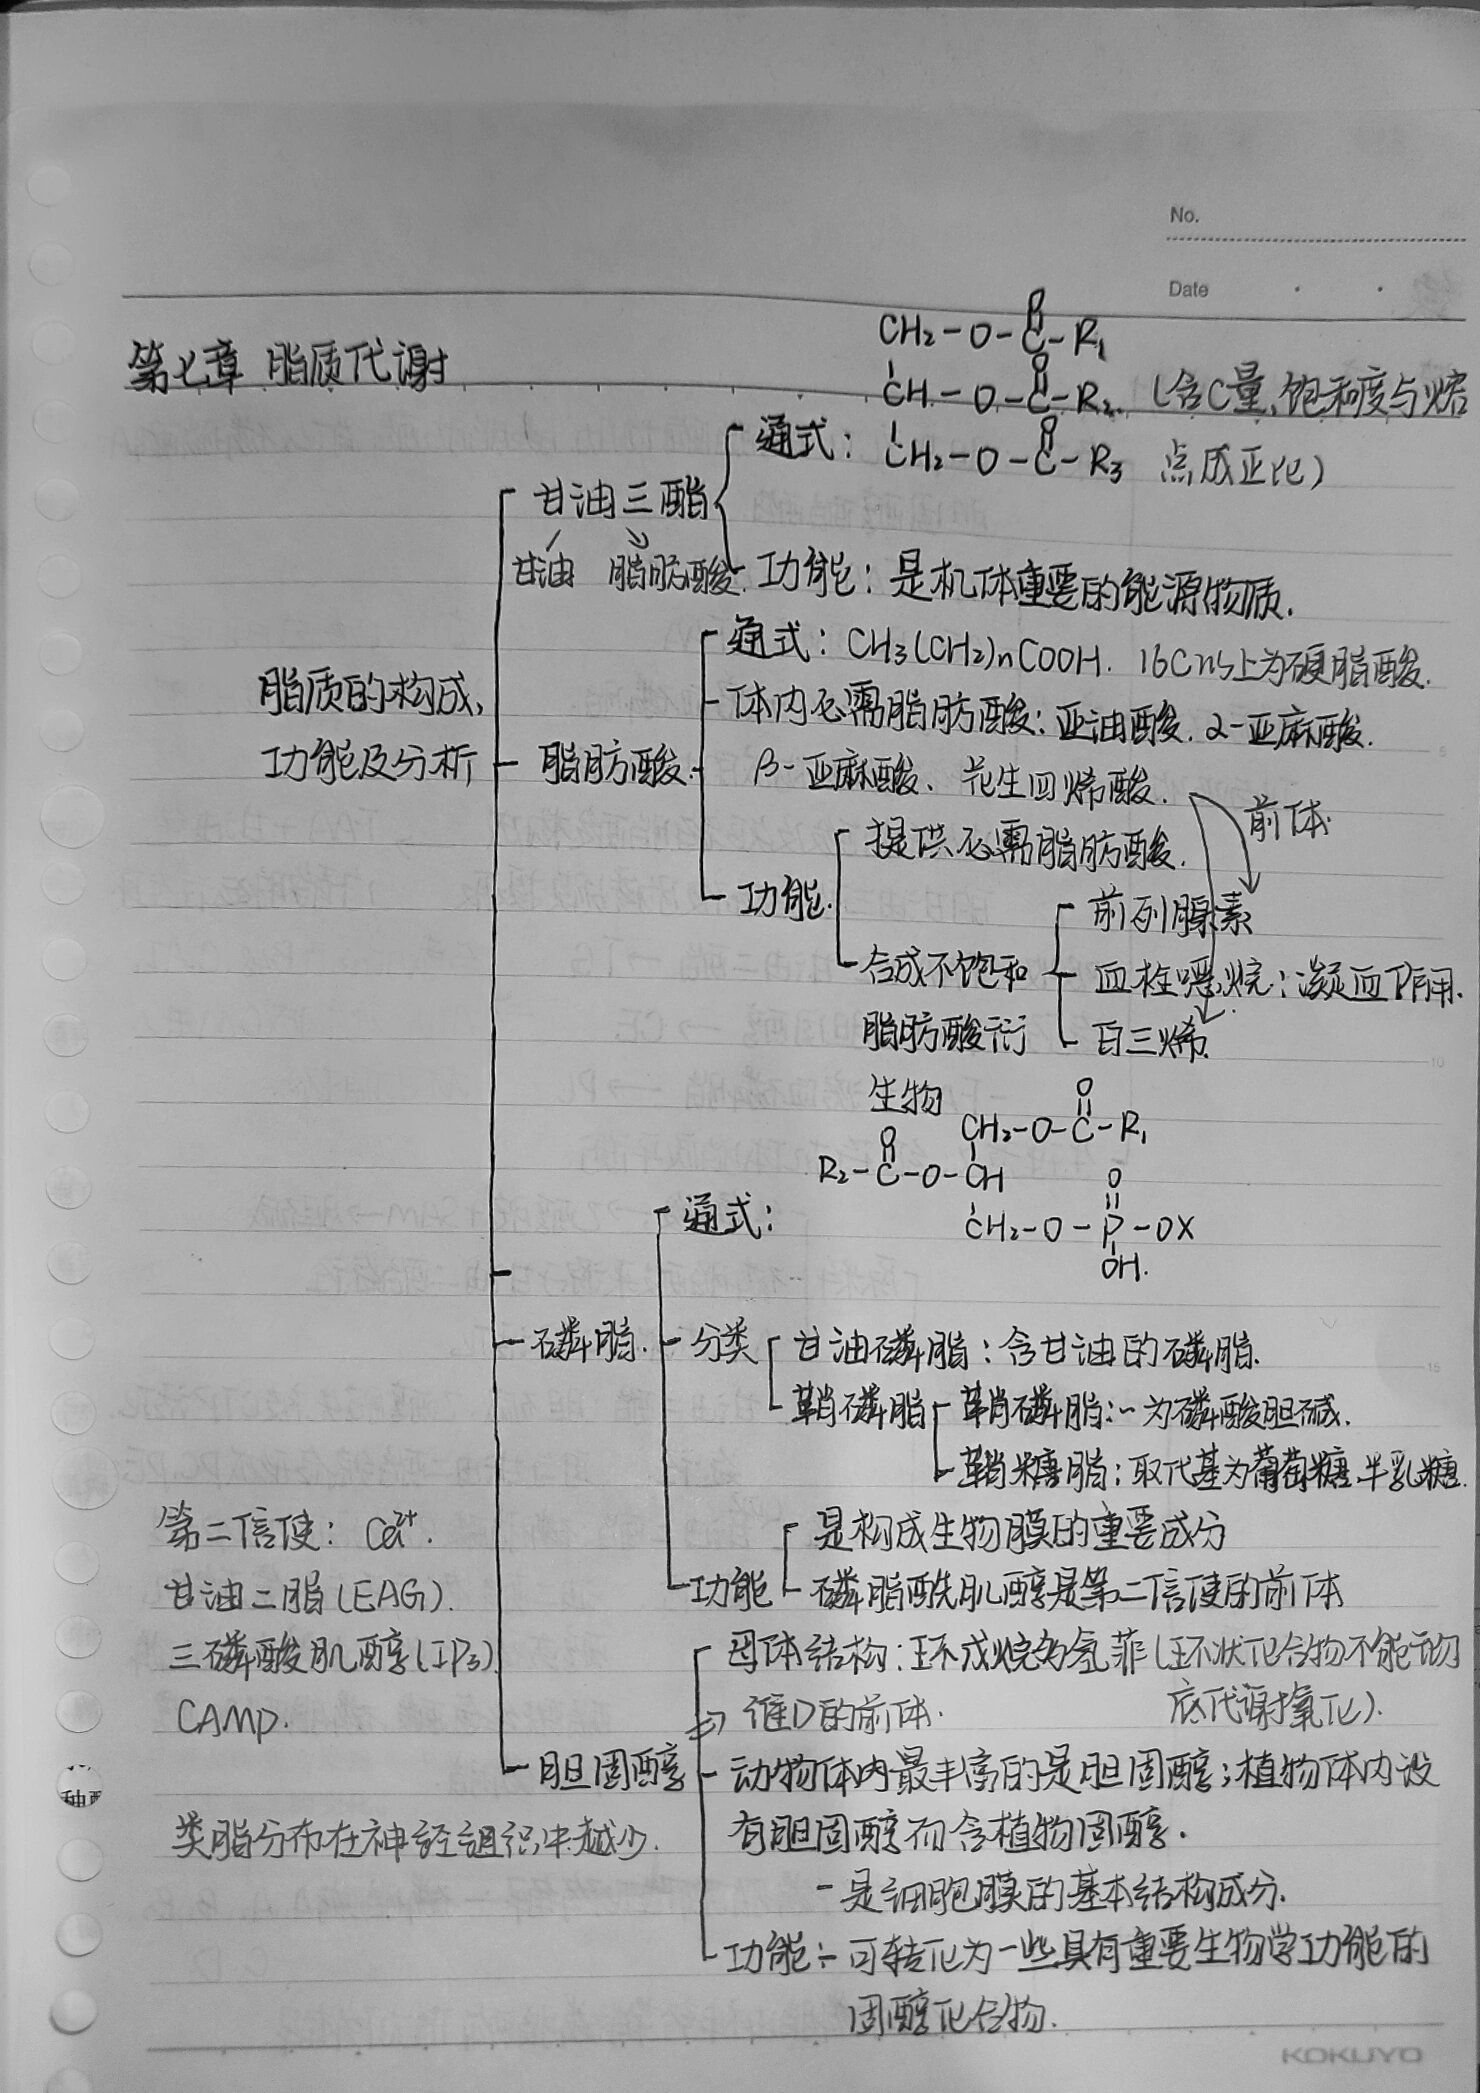 No.
Date
第七章 脂质代谢
CH₂-O-C-R₁
O
CH-O-C-R₂ (含C量、饱和度与熔
O
通式: CH₂-O-C-R₃ 点成正比)
O
甘油三酯
甘油 脂肪酸. 功能: 是机体重要的能源物质.
通式: CH₃(CH₂)nCOOH. 16C以上为硬脂酸.
脂质的构成、
体内必需脂肪酸: 亚油酸. α-亚麻酸.
功能及分析
脂肪酸. β-亚麻酸、花生四烯酸.
前体
提供必需脂肪酸.
功能. 前列腺素
合成不饱和 血栓噁烷: 凝血作用.
脂肪酸衍 白三烯.
生物
O
CH₂-O-C-R₁
O
R₂-C-O-CH
O
通式: CH₂-O-P-OX
OH.
磷脂. 分类 甘油磷脂: 含甘油的磷脂.
鞘磷脂 鞘磷脂:~为磷酸胆碱.
鞘糖脂: 取代基为葡萄糖、半乳糖.
第二信使: Ca²⁺. 是构成生物膜的重要成分
甘油二脂(EAG). 功能 磷脂酰肌醇是第二信使的前体
三磷酸肌醇(IP₃) 母体结构: 环戊烷多氢菲(环状化合物不能动物
CAMP. ⇒ 维D的前体. 底代谢氧化).
胆固醇 动物体内最丰富的是胆固醇;植物体内没
类脂分布在神经组织中越少. 有胆固醇而含植物固醇.
- 是细胞膜的基本结构成分.
功能:- 可转化为一些具有重要生物学功能的
固醇化合物.
KOKUYO